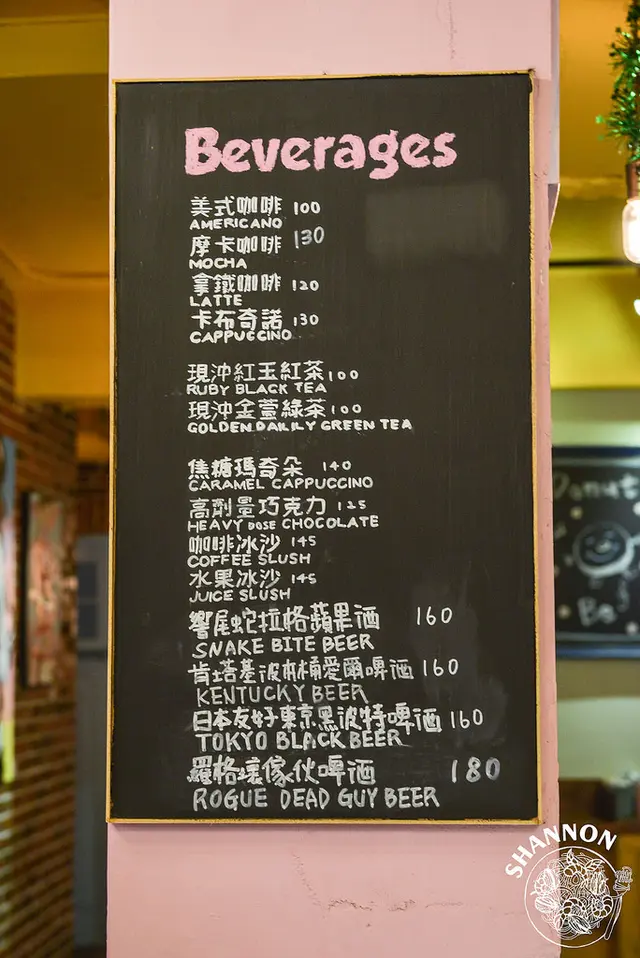 Beverages
美式咖啡 100
AMERICANO
摩卡咖啡 130
MOCHA
拿鐵咖啡 120
LATTE
卡布奇諾 130
CAPPUCCINO
現沖紅玉紅茶 100
RUBY BLACK TEA
現沖金萱綠茶 100
GOLDEN DAILILY GREEN TEA
焦糖瑪奇朵 140
CARAMEL CAPPUCCINO
高劑量巧克力 125
HEAVY DOSE CHOCOLATE
咖啡冰沙 145
COFFEE SLUSH
水果冰沙 145
JUICE SLUSH
響尾蛇拉格蘋果酒 160
SNAKE BITE BEER
肯塔基波本桶愛爾啤酒 160
KENTUCKY BEER
日本友好東京黑波特啤酒 160
TOKYO BLACK BEER
羅格壞傢伙啤酒 180
ROGUE DEAD GUY BEER
Donut
Be
SHANNON